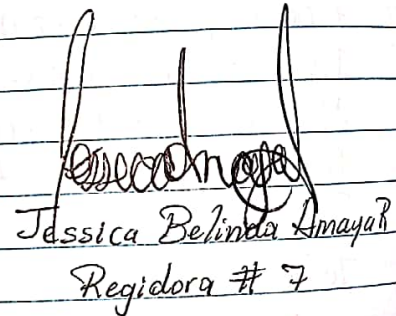 Jessica Belinda Amaya R
Regidora # 7